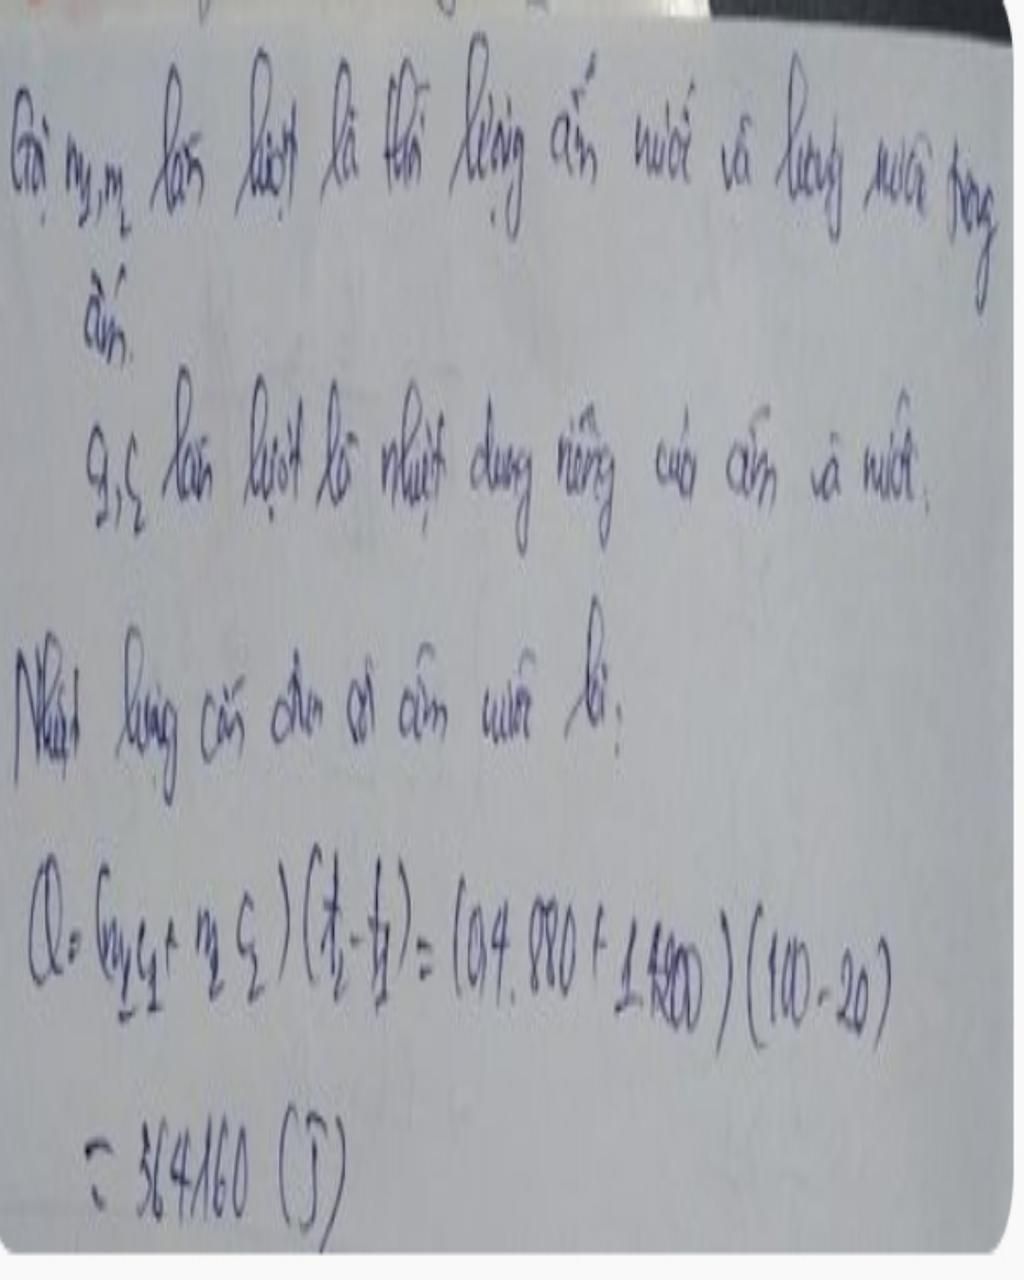 Gọi m₁, m₂ lần lượt là khối lượng ấm nước và lượng nước trong
ấm.
c₁, c₂ lần lượt là nhiệt dung riêng của ấm và nước.
Nhiệt lượng cần đun sôi ấm nước là:
Q = (m₁c₁ + m₂c₂)(t₂ - t₁) = (0,4.880 + 1.4200)(100 - 20)
= 364160 (J)